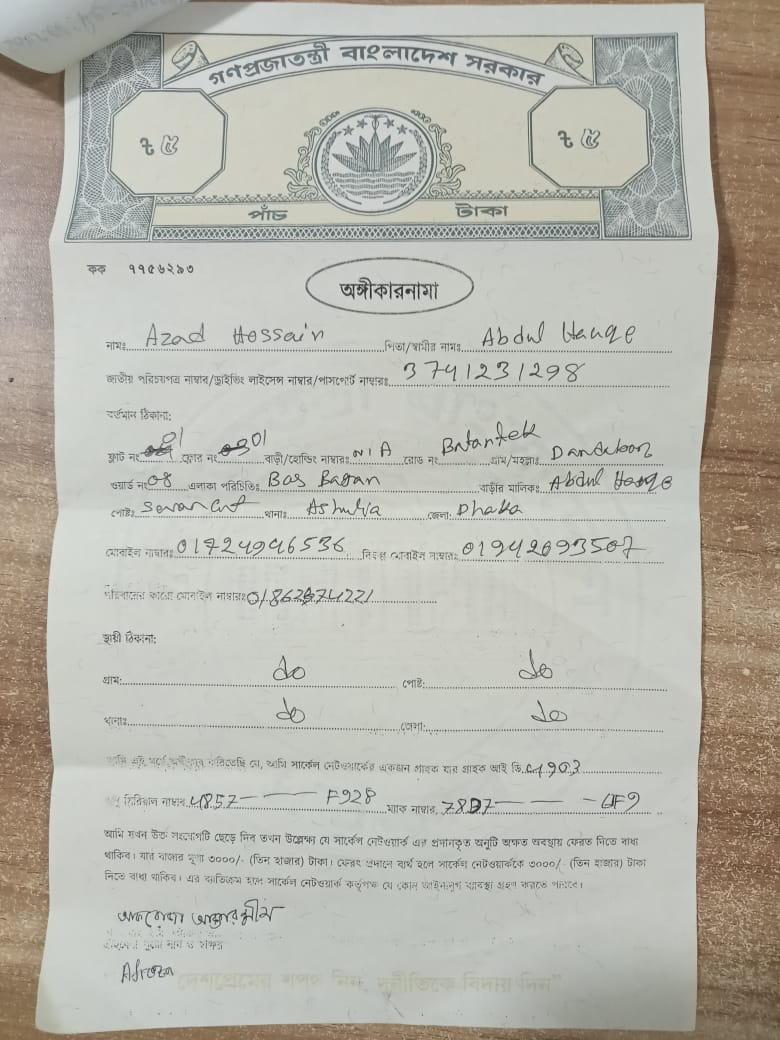 গণপ্রজাতন্ত্রী বাংলাদেশ সরকার
৳ ৫ ৳ ৫
পাঁচ টাকা
কক ৭৭৫৬২৯৩
অঙ্গীকারনামা
নামঃ Azad Hossain পিতা/স্বামীর নামঃ Abdul Hauqe
জাতীয় পরিচয়পত্র নাম্বার/ড্রাইভিং লাইসেন্স নাম্বার/পাসপোর্ট নাম্বারঃ 3741231298
বর্তমান ঠিকানা:
ফ্লাট নং 01 ফ্লোর নং 01 বাড়ী/হোল্ডিং নাম্বারঃ N/A রোড নং গ্রাম/মহল্লাঃ
ওয়ার্ড নং 08 এলাকা পরিচিতিঃ Bas Bagan বাড়ীর মালিকঃ Abdul Hauqe
পোষ্টঃ থানাঃ Ashulia জেলা: Dhaka
মোবাইল নাম্বারঃ 01724946536 মোবাইল নাম্বারঃ 01942693507
পরিবারের কারো মোবাইল নাম্বারঃ
স্থায়ী ঠিকানা:
গ্রাম: do পোষ্ট: do
থানাঃ do জেলা: do
যে, আমি সার্কেল নেটওয়ার্কের একজন গ্রাহক যার গ্রাহক আই ডি 903
সিরিয়াল নাম্বার 4857 — F928 ম্যাক নাম্বার,
আমি যখন উক্ত সংযোগটি ছেড়ে দিব তখন উল্লেক্ষ্য যে সার্কেল নেটওয়ার্ক এর প্রদানকৃত অনুটি অক্ষত অবস্থায় ফেরত দিতে বাধ্য
থাকিব। যার বাজার মূল্য ৩০০০/- (তিন হাজার) টাকা। ফেরৎ প্রদানে ব্যর্থ হলে সার্কেল নেটওয়ার্ককে ৩০০০/- (তিন হাজার) টাকা
দিতে বাধ্য থাকিব। এর ব্যতিক্রম হলে সার্কেল নেটওয়ার্ক কর্তৃপক্ষ যে কোন আইনানুগ ব্যবস্থা গ্রহণ করতে পারবে।
Afroza
"দেশপ্রেমের শপথ নিন, দুর্নীতিকে বিদায় দিন"